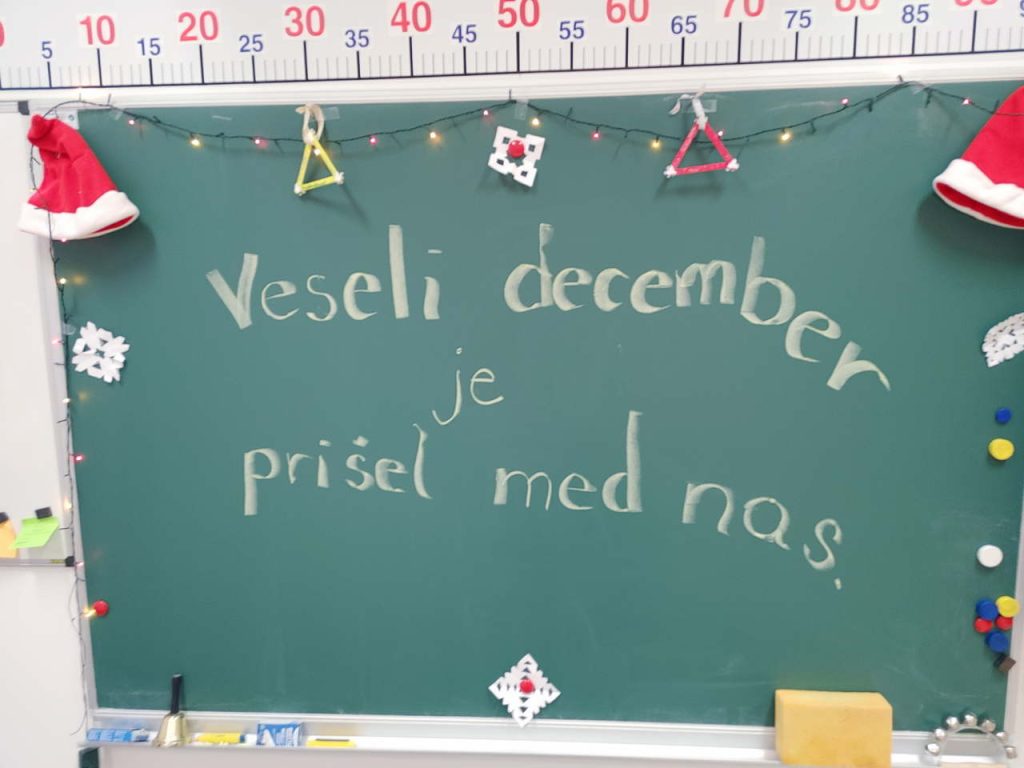 5 10 15 20 25 30 35 40 45 50 55 60 65 70 75 80 85
Veseli december
je
prišel med nas.